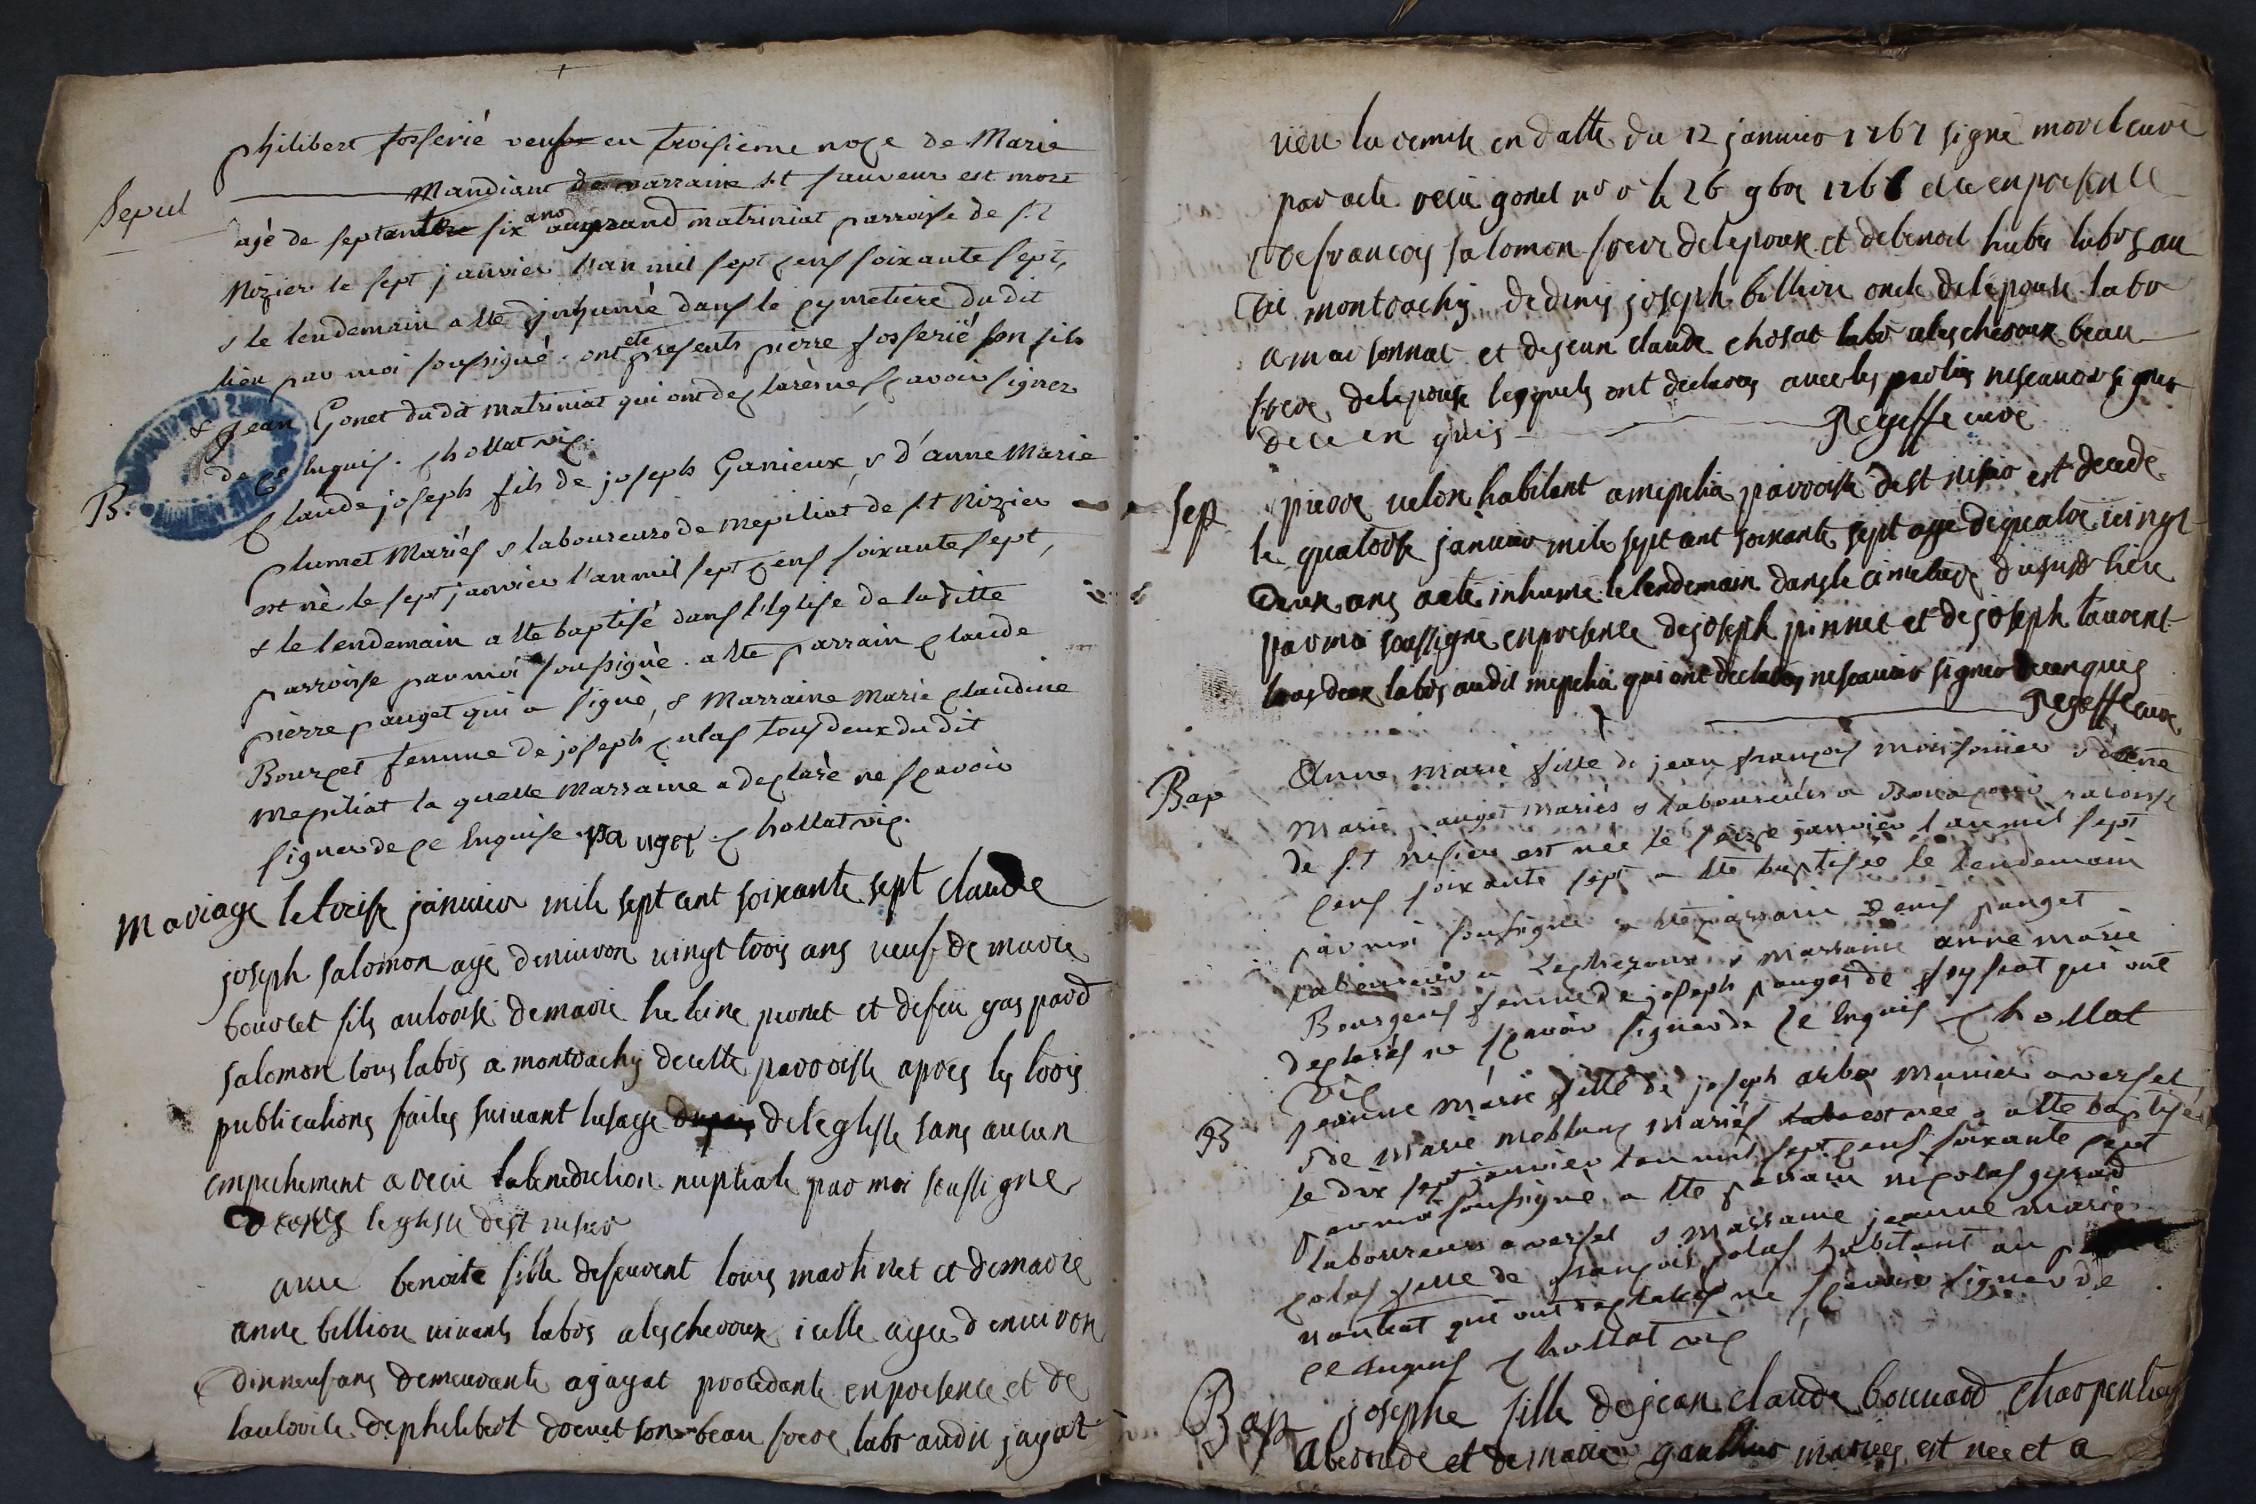 Sepul
philibert fosserié veuf en troisieme noçe de Marie
Mandiant de marraine st sauveur est mort
agé de septante six ans au grand matriniat parroisse de s.t
Nizier le sept janvier l'an mil sept çens soixante sept,
& le lendemain a été inhumé dans le çymetiere du dit
lieu par moi soussigné. ont été presents pierre fosserié son fils
& Jean Gonet du dit matriniat qui ont deçlarés ne sçavoir signer
de çe enquis. chollat viç.
B.
Claude joseph fils de joseph Ganieux & d'anne Marie
plumet Mariés & laboureurs de Mepiliat de s.t Nizier
est né le sept janvier l'an mil sept çens soixante sept,
& le lendemain a été baptisé dans l'Eglise de la ditte
parroisse par moi soussigné. a été parrain çlaude
pierre pauget qui a signé, & Marraine Marie çlaudine
Bourçet femme de joseph çolas tous deux du dit
Mepiliat la quelle Marraine a deçlaré ne sçavoir
signer de çe Enquise. pauget chollat viç.
Mariage le treise janvier mile sept cent soixante sept claude
joseph salomon agé denviron vingt trois ans veuf de marie
bourcet fils autorisé de marie heleine peonet et de feu gaspard
salomon tous labrs a montrachy de cette parroisse apres les trois
publications faites suivant lusage de leglisse sans aucun
empechement a recu la benediction nuptiale par moi soussigné
leglisse de st nisier
avec benoite fille de feuvent louis martinet et de marie
anne billion vivants labrs a les cheroux icelle agee d environ
dinneuf ans demeurante a jayat procedante en presence et de
lautorite de philibert drevet son beau frere labr audit jayat
veu la remise en datte du 12 janvier 1767 signé morel curé
par acte recu gonet nr r le 26 9bre 1766 et ce en presence
de francois salomon frere de lepoux et de benoit huber labrs au
dit montrachy de denis joseph billion oncle de lepouse labr
a marsonnat et de jean claude chosat labr a les cheroux beau
frere de lepouse lesquels ont declarés avec les parties ne scavoir signer
de ce en quis Regeffe curé
Sep
pierre velon habitant a mepelia parroisse de st nisier est decedé
le quatorse janvier mile sept cent soixante sept agé de quatre vingt
deux ans a eté inhumé le lendemain dans le cimetiere du susd. lieu
par moi soussigné en presence de joseph pinnet et de joseph laurent
tous deux labrs audit mepelia qui ont declarés ne scavoir signer de ce enquis
Regeffe curé
Bap
Anne Marie fille de jean françois moissonnier & d'anne
Marie pauget mariés & laboureurs a parroisse
de s.t nisier est née le seize janvier l'an mil sept
çens soixante sept a été baptisée le lendemain
par moi soussigné a été parrain Denis pauget
laboureur a Lescheroux & Marraine anne marie
Bourgeois femme de joseph pauget de foyssiat qui ont
deçlarés ne sçavoir signer de çe Enquis Chollat
Viç
B
jeanne Marie fille de joseph arbin Munier a versel
& de Marie Meblanç Mariés est née & a été baptisée
le dix sept janvier l'an mil sept çens soixante sept
par moi soussigné a été parrain nicolas gyraud
laboureur a versel & Marraine jeanne marie
çolas fille de françois çolas habitant au
nantiat qui ont deçlarés ne sçavoir signer de
çe Enquis Chollat viç
Bap
josephe fille de jean claude bouvard charpentier
a beroude et de marie gauthier mariés est née et a